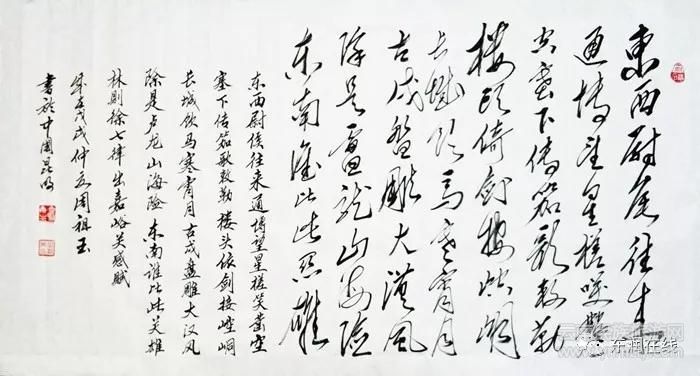 東西尉候往来
通博望星槎笑鑿
空塞下傳笳歌敕勒
楼頭倚劍接崆峒
长城饮马寒宵月
古戍盤雕大漠風
除是盧龙山海险
东南谁比此関雄
东西尉侯往来通望星槎笑凿空
塞下传笳歌敕勒 楼头依剑接崆峒
长城饮马寒宵月 古戍盘雕大汉风
除是卢龙山海险 东南谁比此关雄
林则徐七律出嘉峪关感赋
戊戌仲夏周祖玉
書於中國昆明
东润在线